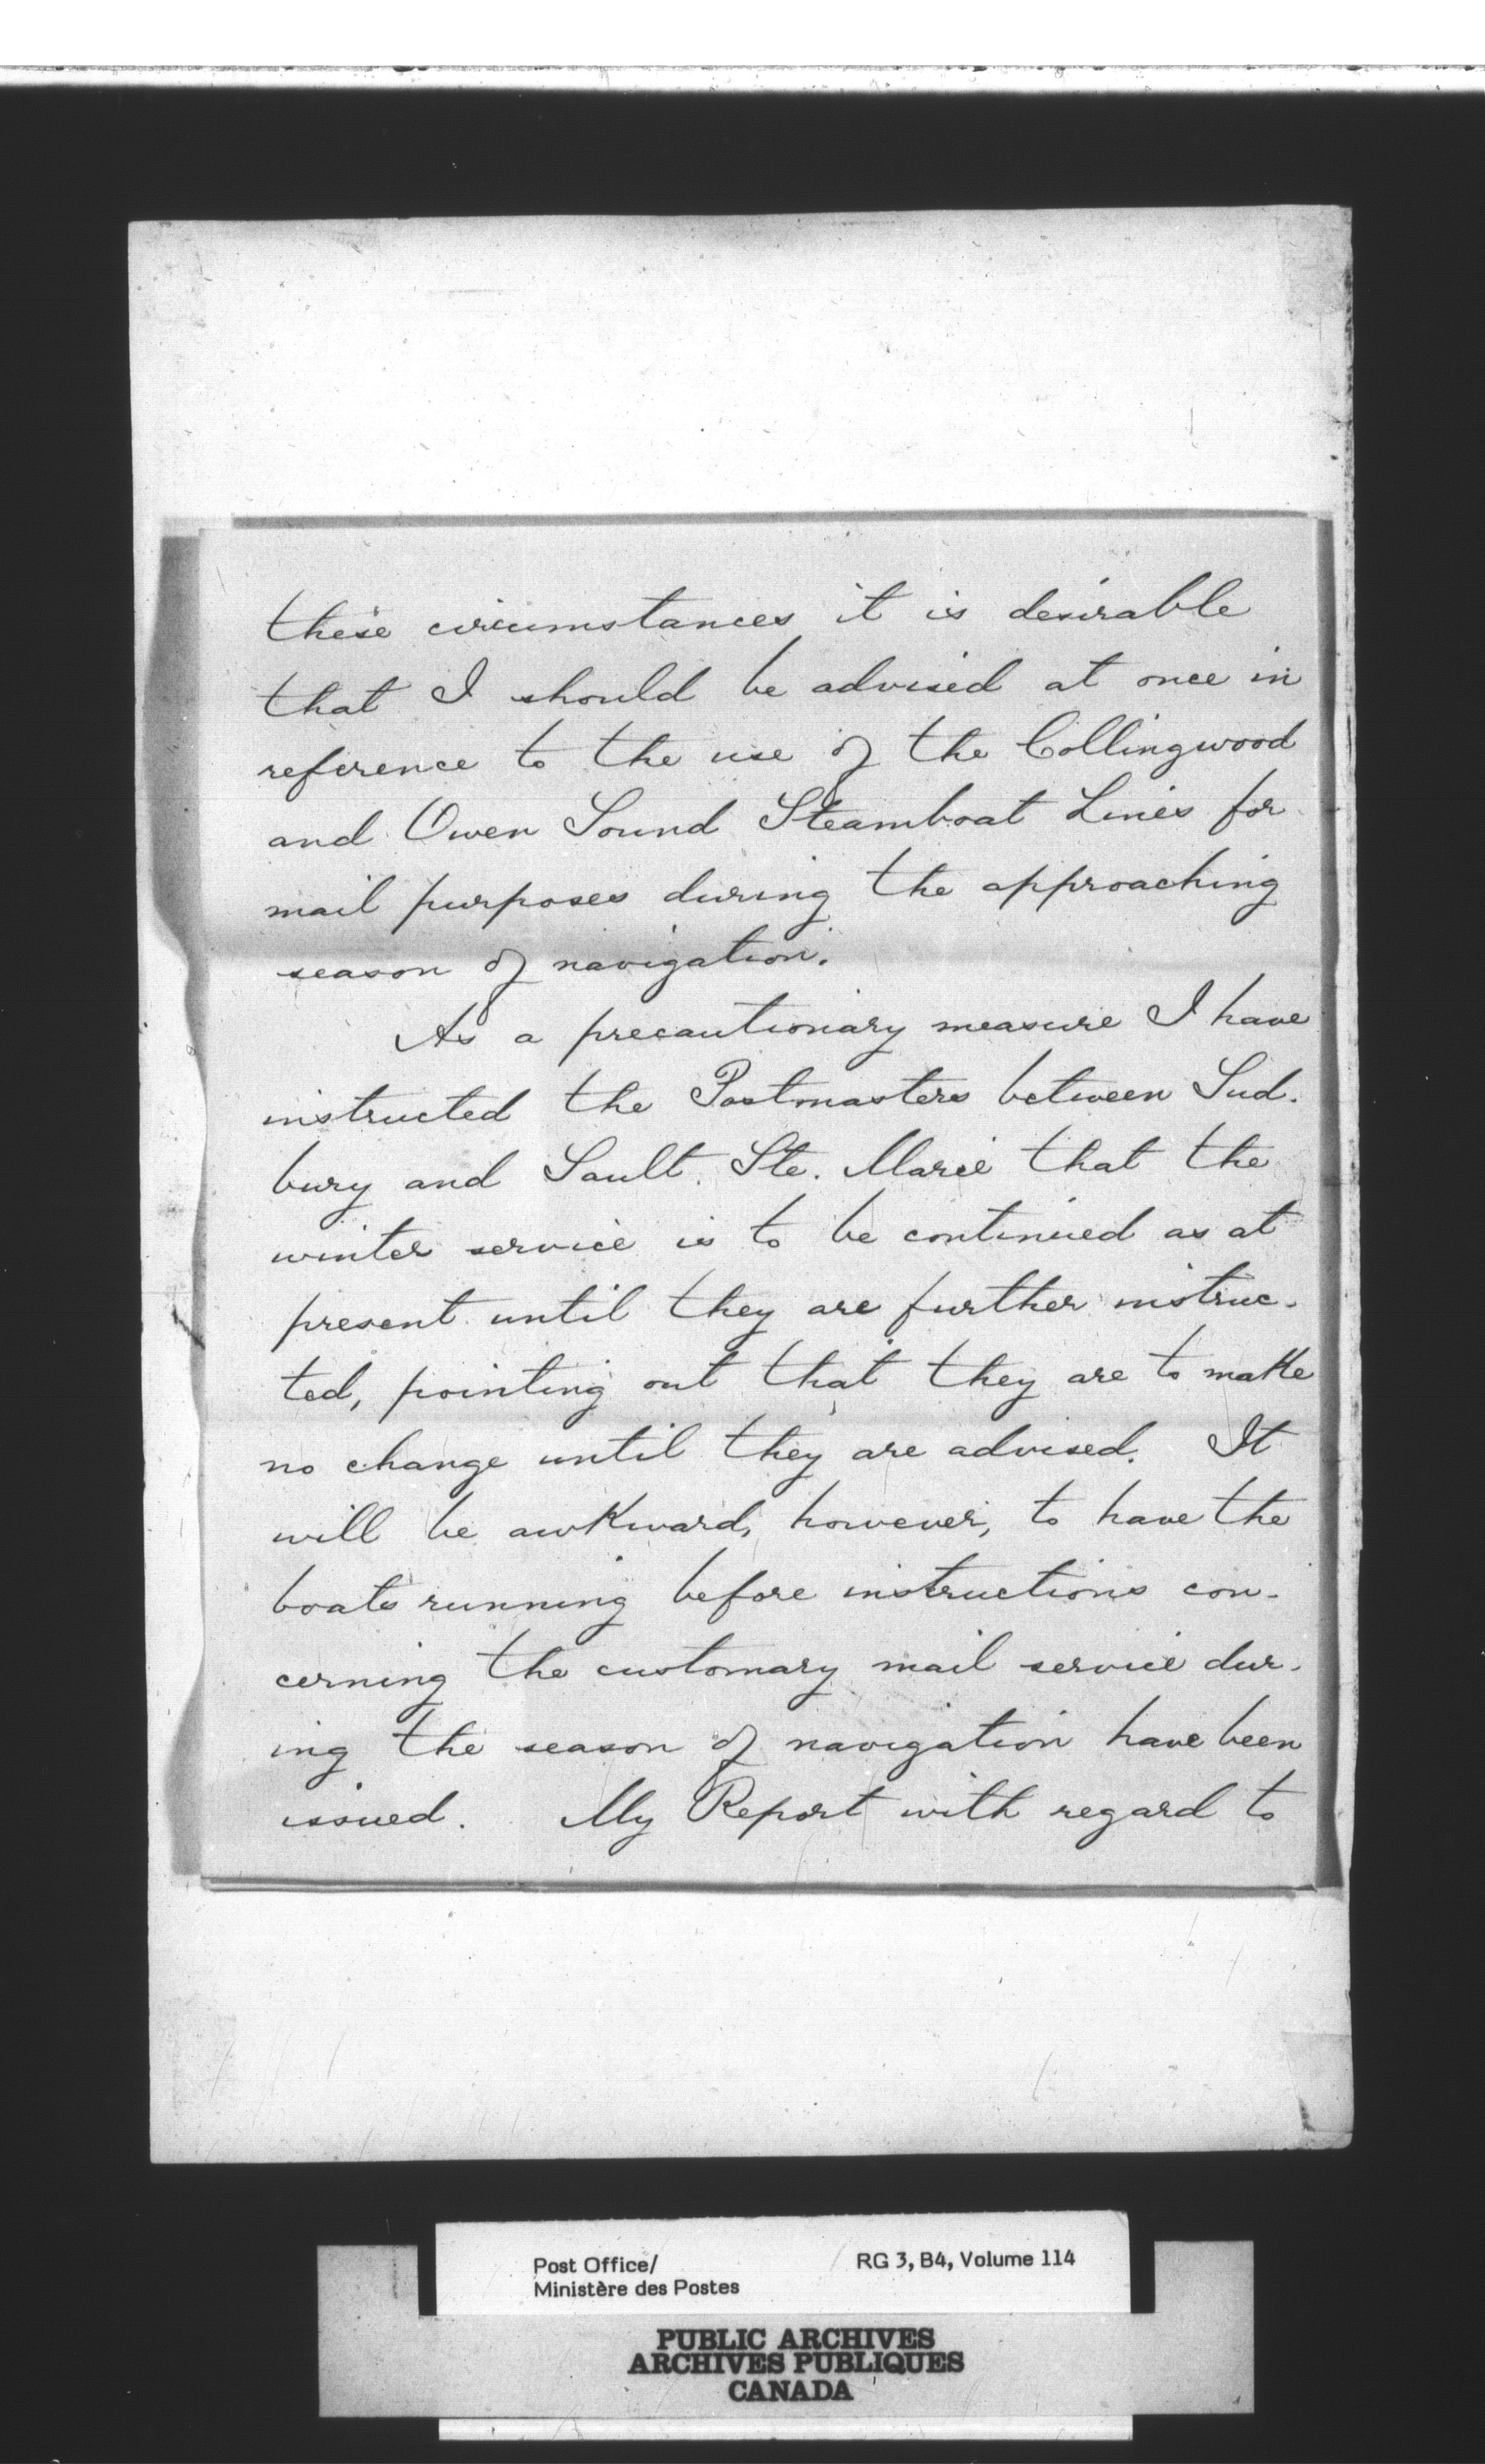 these circumstances it is desirable
that I should be advised at once in
reference to the use of the Collingwood
and Owen Sound Steamboat Lines for
mail purposes during the approaching
season of navigation.
As a precautionary measure I have
instructed the Postmasters between Sud-
bury and Sault Ste. Marie that the
winter service is to be continued as at
present until they are further instruc-
ted, pointing out that they are to make
no change until they are advised. It
will be awkward, however, to have the
boats running before instructions con-
cerning the customary mail service dur-
ing the season of navigation have been
issued. My Report with regard to
Post Office/ RG 3, B4, Volume 114
Ministère des Postes
PUBLIC ARCHIVES
ARCHIVES PUBLIQUES
CANADA